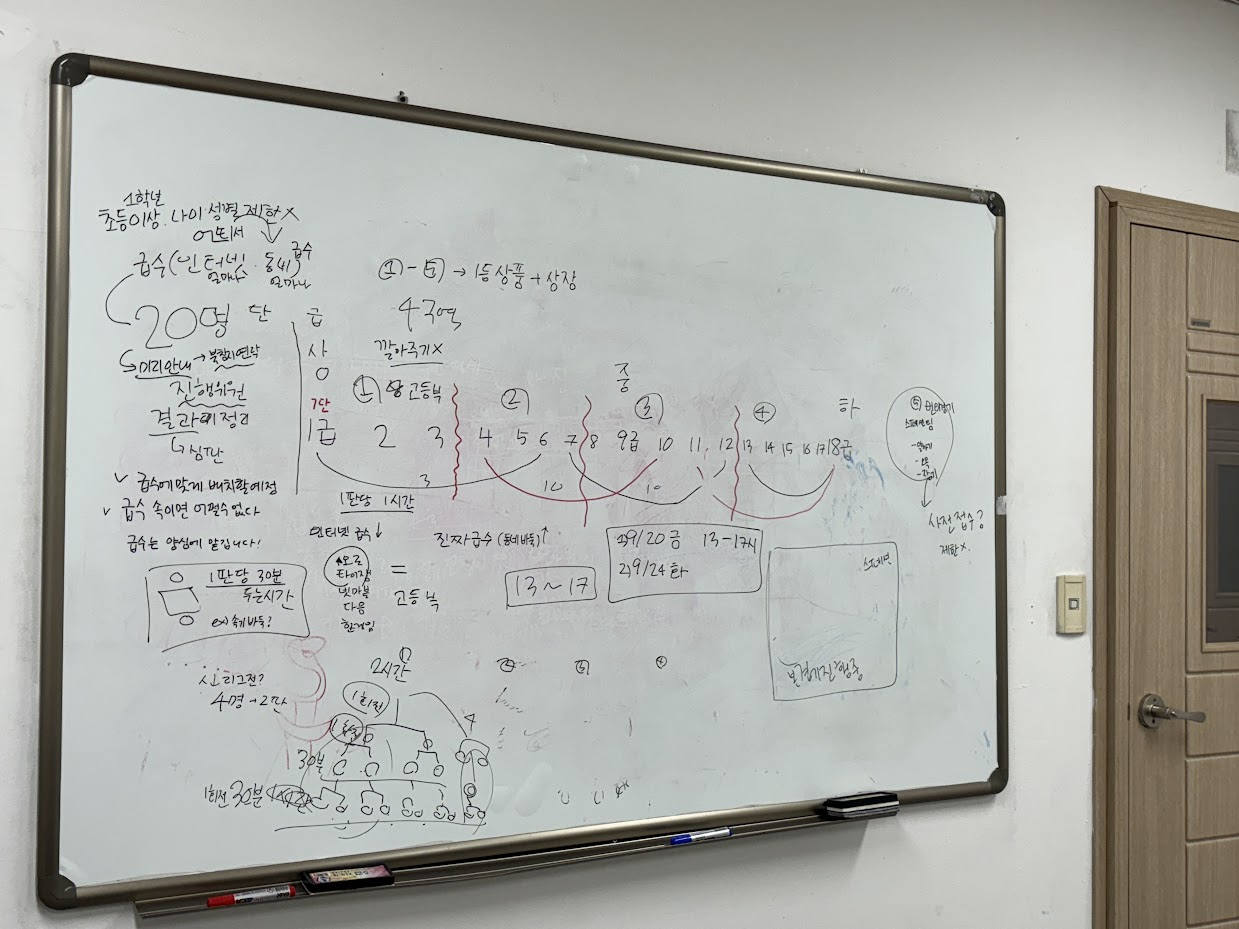 1학년
초등이상. 나이·성별 제한 X
어디서
급수(인터넷·동네) 급수
얼마나 얼마나
20명
미리안내 → 불참시연락
진행위원
결과 정리
심판
✓ 급수에 맞게 배치할 예정
✓ 급수 속이면 어쩔수 없다
급수는 양심에 맡깁니다!
1판당 30분
두는시간
ex) 속기바둑?
리그전?
4명 → 2판
단
급
사
0
① - ⑤ → 1등 상품 + 상장
4구역
깔아주기 X
중
① 고등부 ② ③ ④ 하
7단
1급 2 3 4 5 6 7 8 9급 10 11 12 13 14 15 16 17 18급
3 10 10
1판당 1시간
인터넷 급수 ↓
진짜급수 (동네바둑) ↑
오로
타이젬
넷마블
다음
한게임
=
고등부
13~17
1) 9/20 금 13-17시
2) 9/24 화
⑤
사전접수?
제한 X.
진행중
2시간
1회전
4
30분
1회전 30분